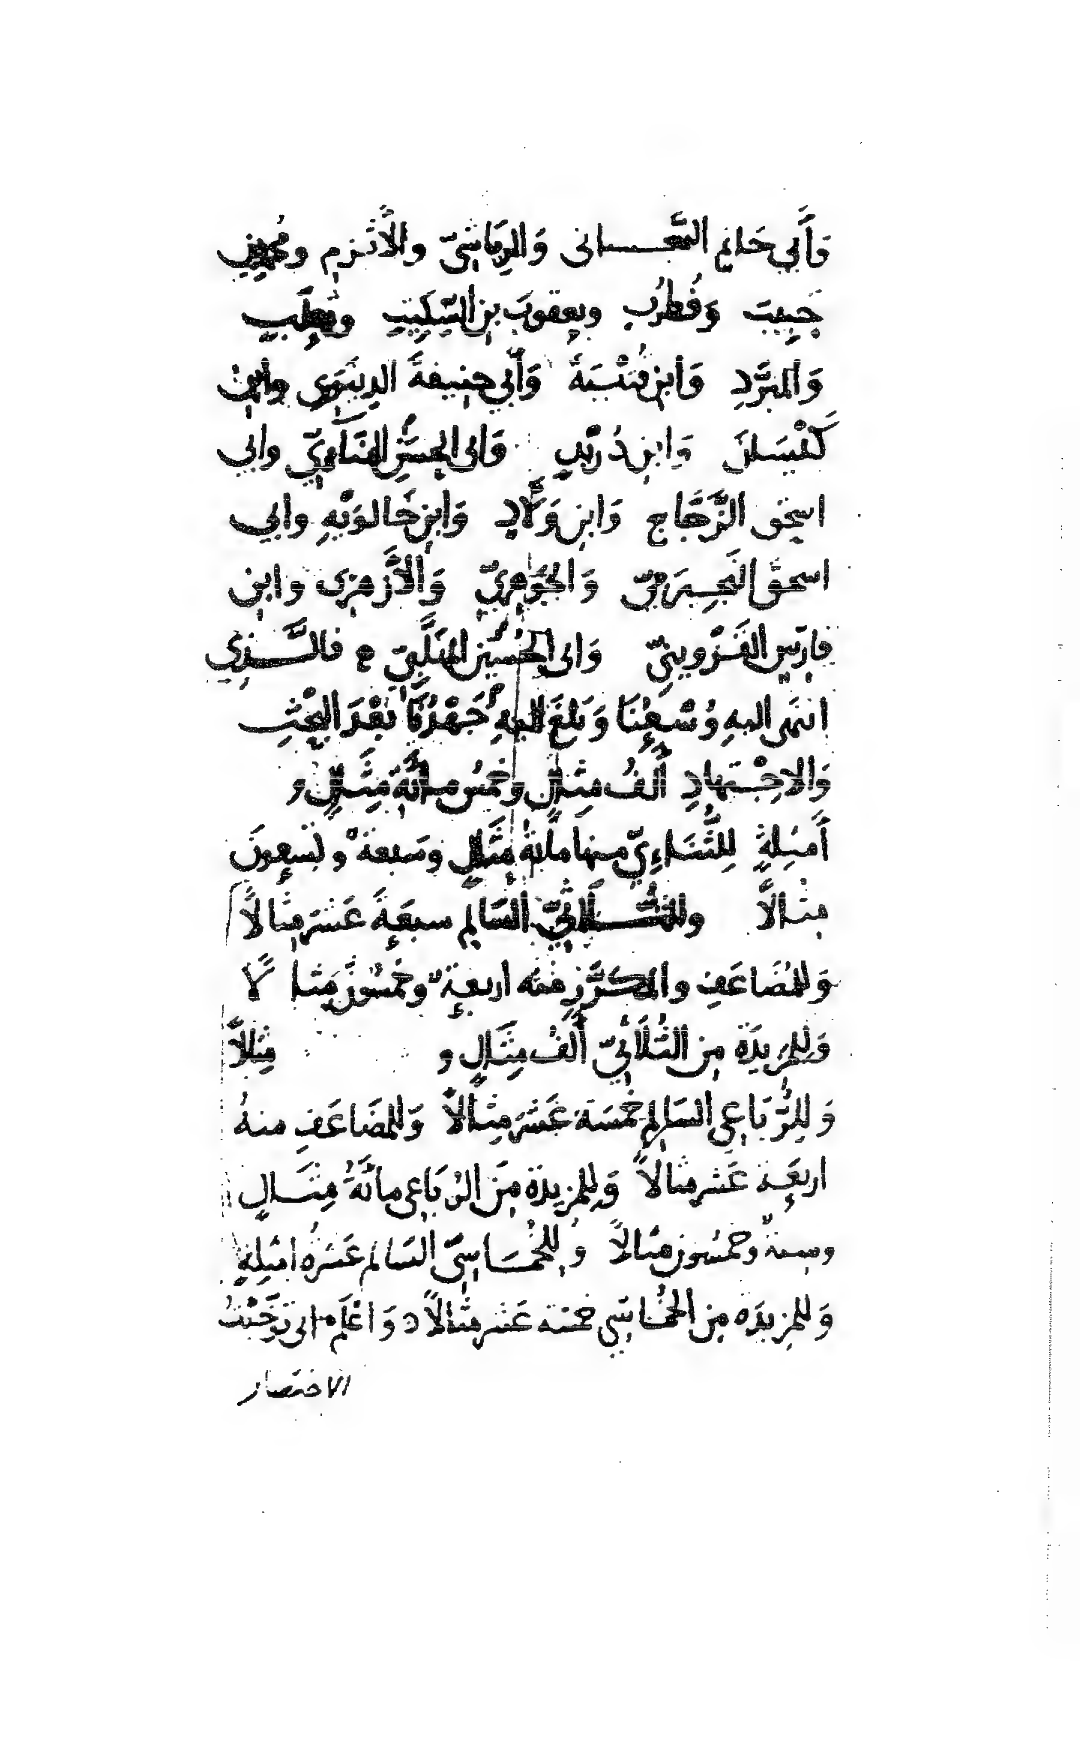 وَأَبي حَاتِم السِّجِسْتاني وَالرِّيَاشِيّ والأَثْرَم ومُحمد بن
حَبيبَ وَقُطْرُب ويعقوبَ بن السِّكِّيتِ وثَعْلَبٍ
وَالمبَرَّدِ وَابن قُتَيْبَةَ وَأَبي حنيفةَ الدِينَوَري وابن
كَيْسَانَ وَابن دُرَيْدٍ وَابى الحسن الهُنَآءِيّ وابي
اسحق الزَّجَّاج وَابن وَلَّادٍ وَابن خَالوَيْهِ وابي
اسحق النَجِيرَمىّ وَالجَوْهريّ وَالأَزْهرى وابن
فارِس القَزْوينيّ وَابى الحُسَين المُهَلَّبيّ فالَّذي
انتهى اليهِ وُسْعُنَا وَبَلغَ اليهِ جَهْدُنَا بَعْدَ البَحْثِ
وَالاجْتهادِ أَلفُ مِثَالٍ وخَمْسُ مائَةِ مِثَالٍ و
أَمثِلةٍ لِلثُّنَاءِيّ منها مائةُ مِثَالٍ وسَبعة وتسعونَ
مثالًا وللثُّلَاثيّ السَالم سبعَةَ عَشَرَ مِثَالًا
وَلِلْمُضَاعَفِ والمُكَرَّرِ منه اربعة وخَمْسُونَ مِثالًا
وَلِلمَزيدَة مِن الثُلَاثيّ أَلفُ مِثَالٍ و مِثَالًا
وَلِلرُّبَاعي السَالم خَمْسَة عَشَرَ مِثَالًا وَلِلمضَاعَفِ منهُ
اربَعَة عَشر مثالًا وَلِلمزيدَة مِنَ الرُبَاعى مائَةُ مِثَالٍ
وستة وخمسُون مثالًا وَلِلْخُمَاسِيّ السَالم عَشَرةُ امثِلةٍ
وَللمزيدَه مِن الخُمَاسِي خمسَة عَشر مِثَالًا وَاعْلَم انى توَخّيْتُ
الاختصار